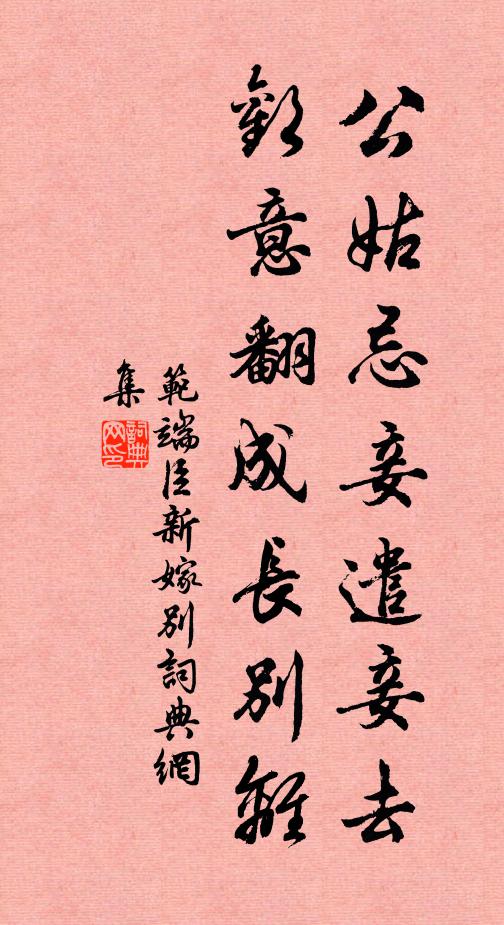 公姑忌妾遣妾去
歡意翻成長別離
範端臣新嫁別詞典網
集
詞典网印